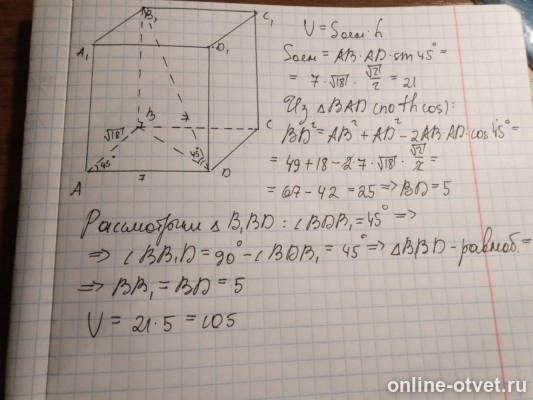 B₁
C₁
A₁
D₁
V = Sосн·h
Sосн = AB·AD·sin45° =
= 7·√18·√2/2 = 21
Из △BAD (по th cos):
BD² = AB² + AD² - 2AB·AD·cos45° =
= 49 + 18 - 2·7·√18·√2/2 =
= 67 - 42 = 25 => BD = 5
B
7
C
√18
45°
45°
A
7
D
Рассмотрим △B₁BD: ∠BDB₁ = 45° =>
=> ∠BB₁D = 90° - ∠BDB₁ = 45° => △BB₁D - равноб. =
=> BB₁ = BD = 5
V = 21·5 = 105
online-otvet.ru